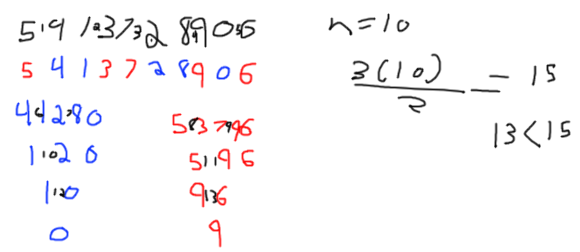 5 1 4 1 2 3 7 3 2 8 4 9 0 5 6
5 4 1 3 7 2 8 9 0 6
4 2 8 0
1 10 2 0
1 12 0
0
5 8 3 7 9 9 6
5 11 9 6
9 13 6
9
n = 10
3(10)
2
= 15
13 < 15